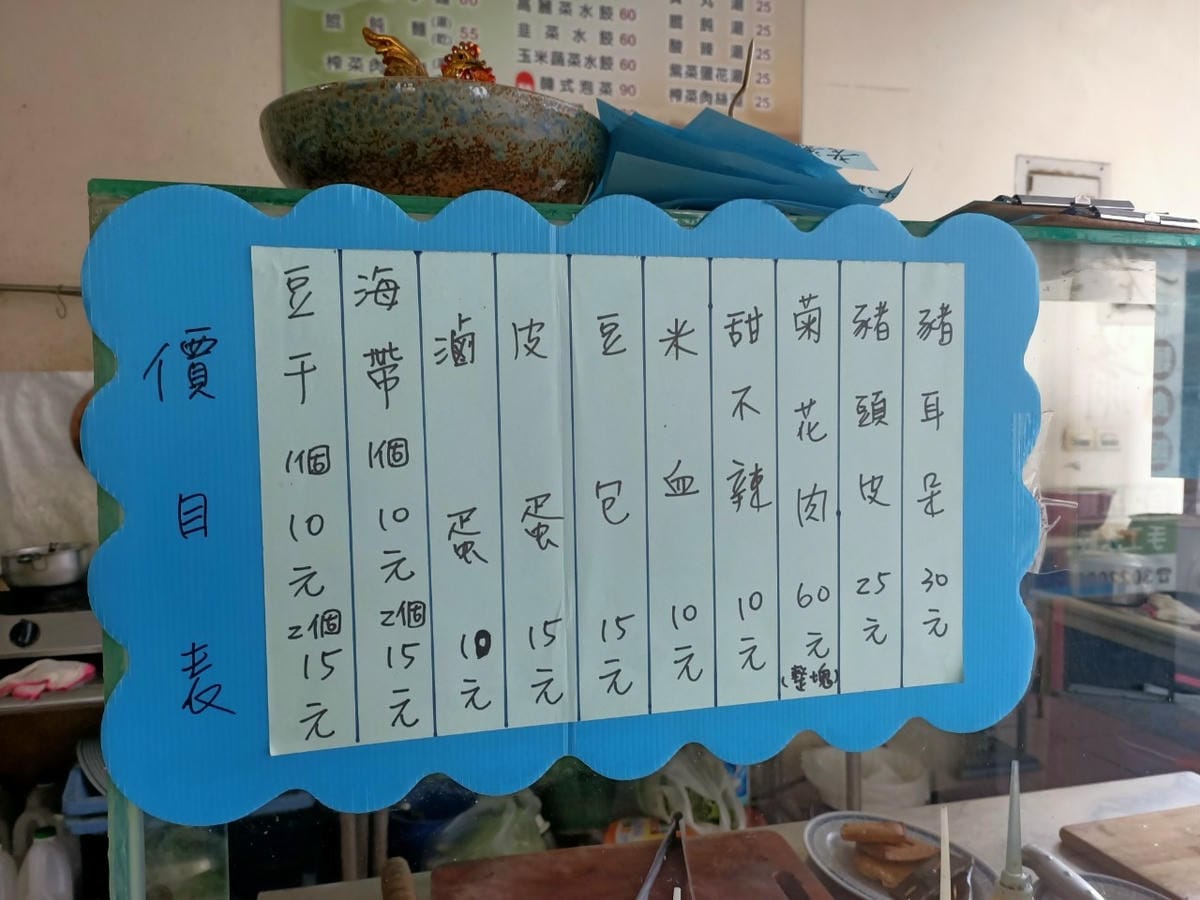 餛飩麵(湯)(乾)55
榨菜肉
高麗菜水餃60
韭菜水餃60
玉米蔬菜水餃60
韓式泡菜90
丸湯25
餛飩湯25
酸辣湯25
紫菜蛋花湯25
榨菜肉絲湯25
價目表
豆干1個10元2個15元
海帶1個10元2個15元
滷蛋10元
皮蛋15元
豆包15元
米血10元
甜不辣10元
菊花肉60元(整塊)
豬頭皮25元
豬耳朵30元